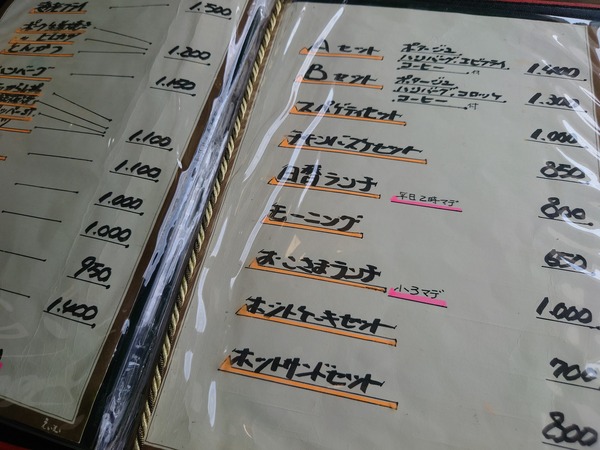 1.500
1.200
とんかつ
1.150
ハンバーグ
1.100
1.100
1.000
1.000
950
1.400
Aセット ポタージュ
ハンバーグ、エビフライ
コーヒー 付 1.400
Bセット ポタージュ
ハンバーグ、コロッケ
コーヒー 付 1.300
スパゲティセット 1.000
チキンバスケセット 850
日替ランチ 平日2時マデ 800
モーニング 650
おこさまランチ 小3マデ 1.000
ホットケーキセット 700
ホットサンドセット 800